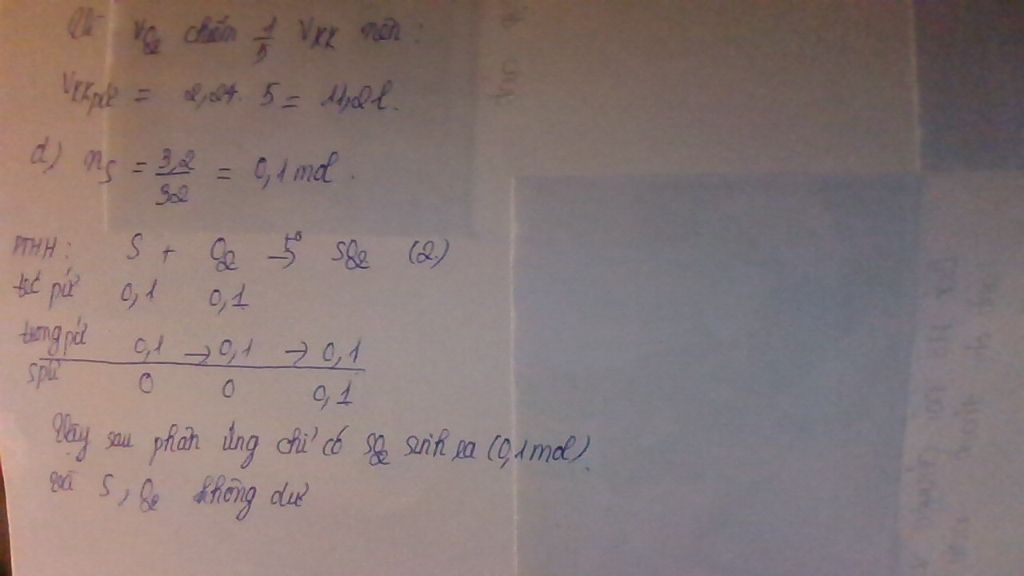 Vì VO2 chiếm 1/5 VKK nên:
VKK pứ = 2,24. 5 = 11,2l.
d) nS = 3,2/32 = 0,1 mol.
PTHH: S + O2 →t° SO2 (2)
trc pứ 0,1 0,1
trong pứ 0,1 → 0,1 → 0,1
spứ 0 0 0,1
Vậy sau phản ứng chỉ có SO2 sinh ra (0,1 mol)
và S, O2 không dư